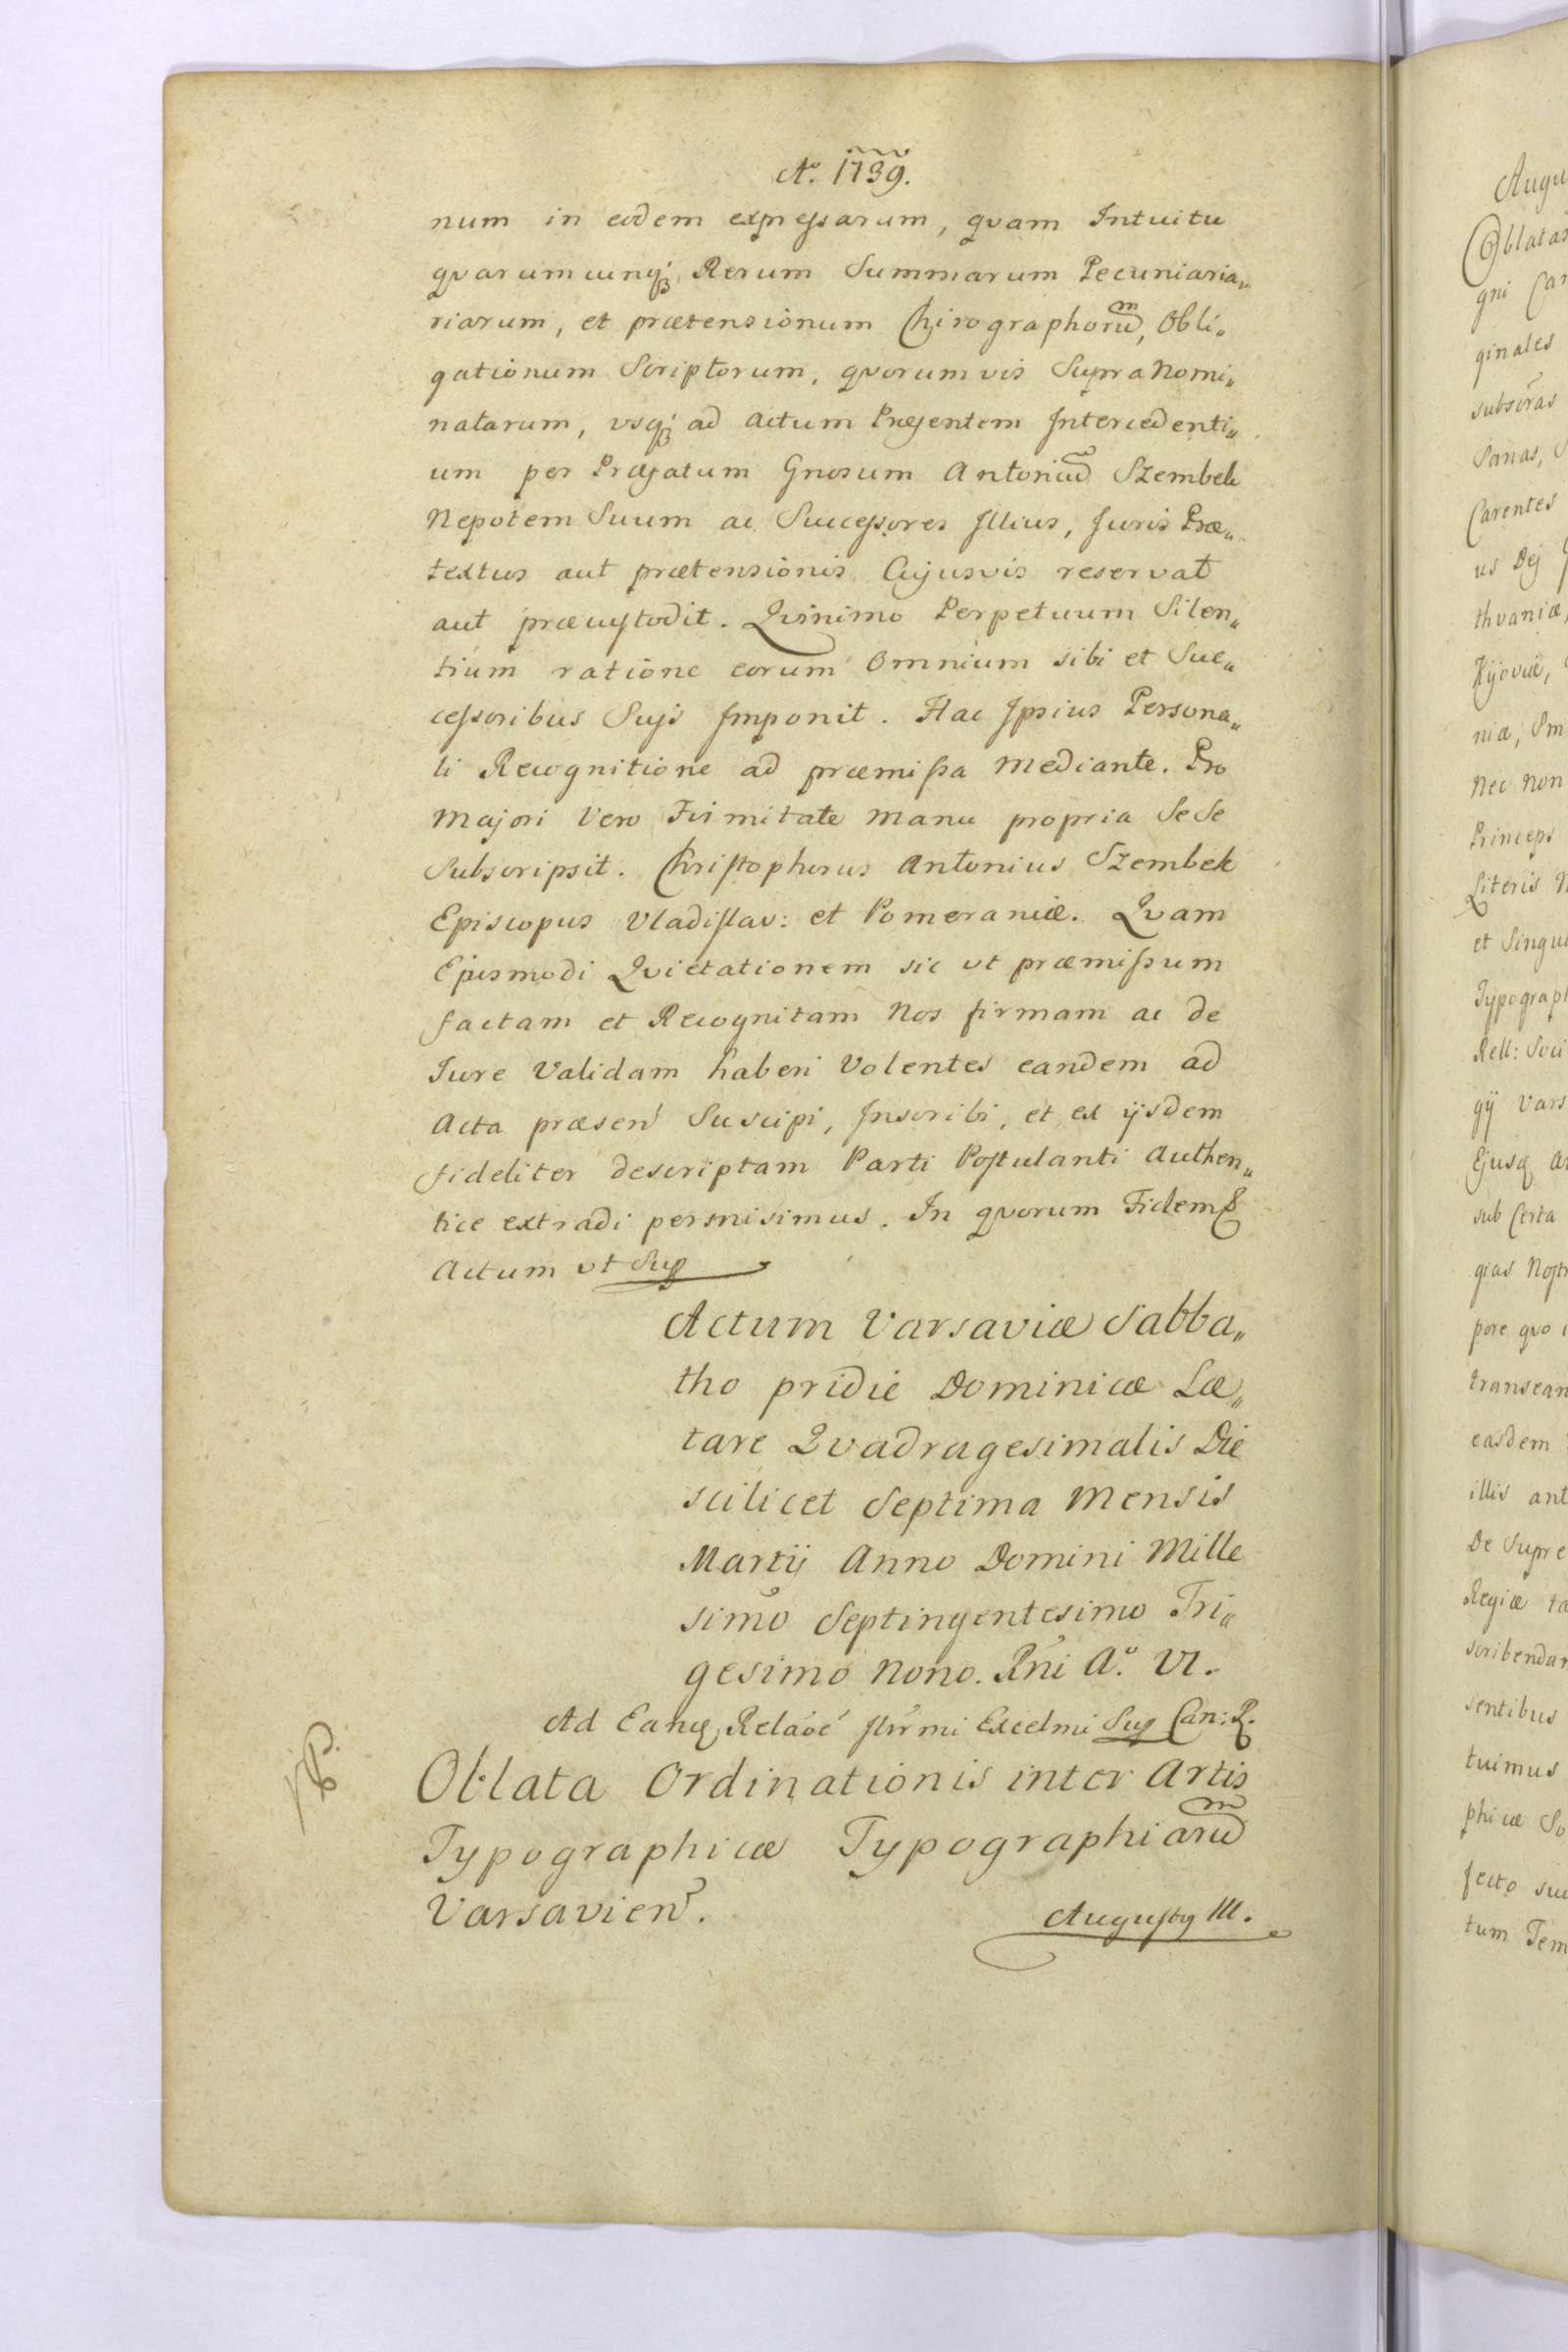 Aº. 1739.
num in eodem expressarum, qvam Intuitu
qvarumcunq; Rerum Summarum Pecuniaria„
riarum, et prætensionum Chirographorum, Obli„
gationum Scriptorum, qvorumvis Supra Nomi„
natarum, vsq; ad Actum Præsentem Intercedenti„
um per Præfatum Gnosum Antonium Szembek
Nepotem Suum ac Successores Illius, Juris Præ„
textus aut prætensionis Cujusvis reservat
aut præcustodit. Qvinimo Perpetuum Silen„
tium ratione eorum Omnium sibi et Suc„
cessoribus Suis Imponit. Hac Ipsius Persona„
li Recognitione ad præmissa mediante. Pro
Majori Vero Firmitate manu propria Se Se
Subscripsit. Christophorus Antonius Szembek
Episcopus Vladislav: et Pomeraniæ. Qvam
Ejusmodi Qvietationem sic vt præmissum
factam et Recognitam Nos firmam ac de
Iure Validam haberi Volentes eandem ad
Acta præsen Suscipi, Inscribi, et ex ijsdem
fideliter descriptam Parti Postulanti Authen„
tice extradi permisimus. In qvorum Fidem &
Actum vt Sup
Actum Varsaviæ Sabba„
tho pridie Dominicæ Læ„
tare Qvadragesimalis Die
scilicet Septima Mensis
Martij Anno Domini Mille
simo Septingentesimo Tri„
gesimo Nono. Rni Aº. VI.
Ad Eanq, Relaoe Illrmi Excelmi Sup Can: R.
Oblata Ordinationis inter Artis
Typographicæ Typographiarum
Varsavien.
Augustg III.
Augu
Oblatas
gni Can
ginales
subscras
Sanas, S
Carentes
us Dej
thvaniæ,
Kijoviæ,
niæ, Sm
Nec non
Princeps
Literis N
et Singul
Typograph
Rell: Soci
gij Vars
Ejusq, Ar
sub Certa
gias Nostr
pore qvo
transean
easdem
illis ant
De Supre
Regiæ ta
scribendar
sentibus
tuimus
phicæ So
fecto su
tum Tem